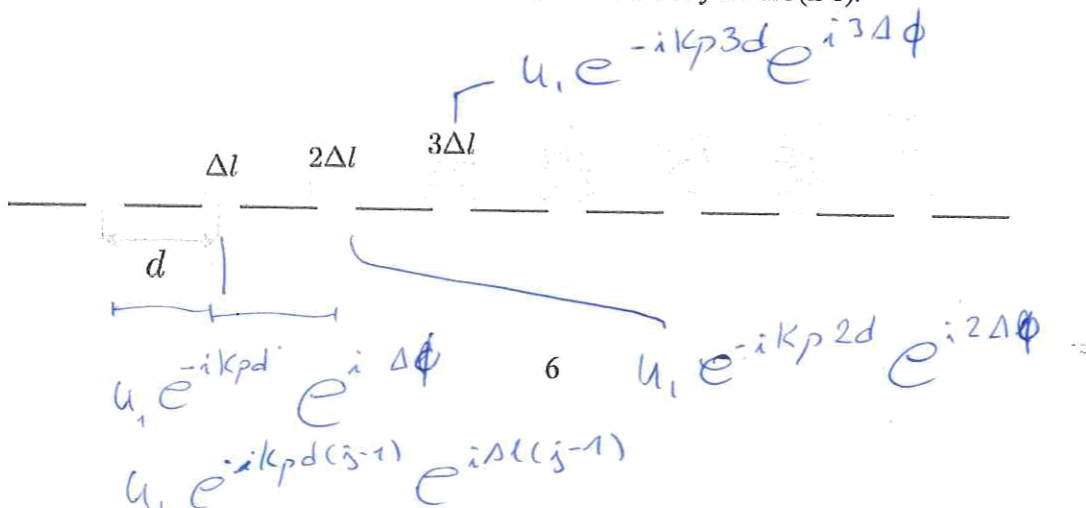 u₁ e^{-ikp3d} e^{i3Δϕ}
Δl 2Δl 3Δl
d
u₁ e^{-ikpd} e^{iΔϕ}
6
u₁ e^{-ikp2d} e^{i2Δϕ}
u₁ e^{-ikpd(j-1)} e^{iΔl(j-1)}